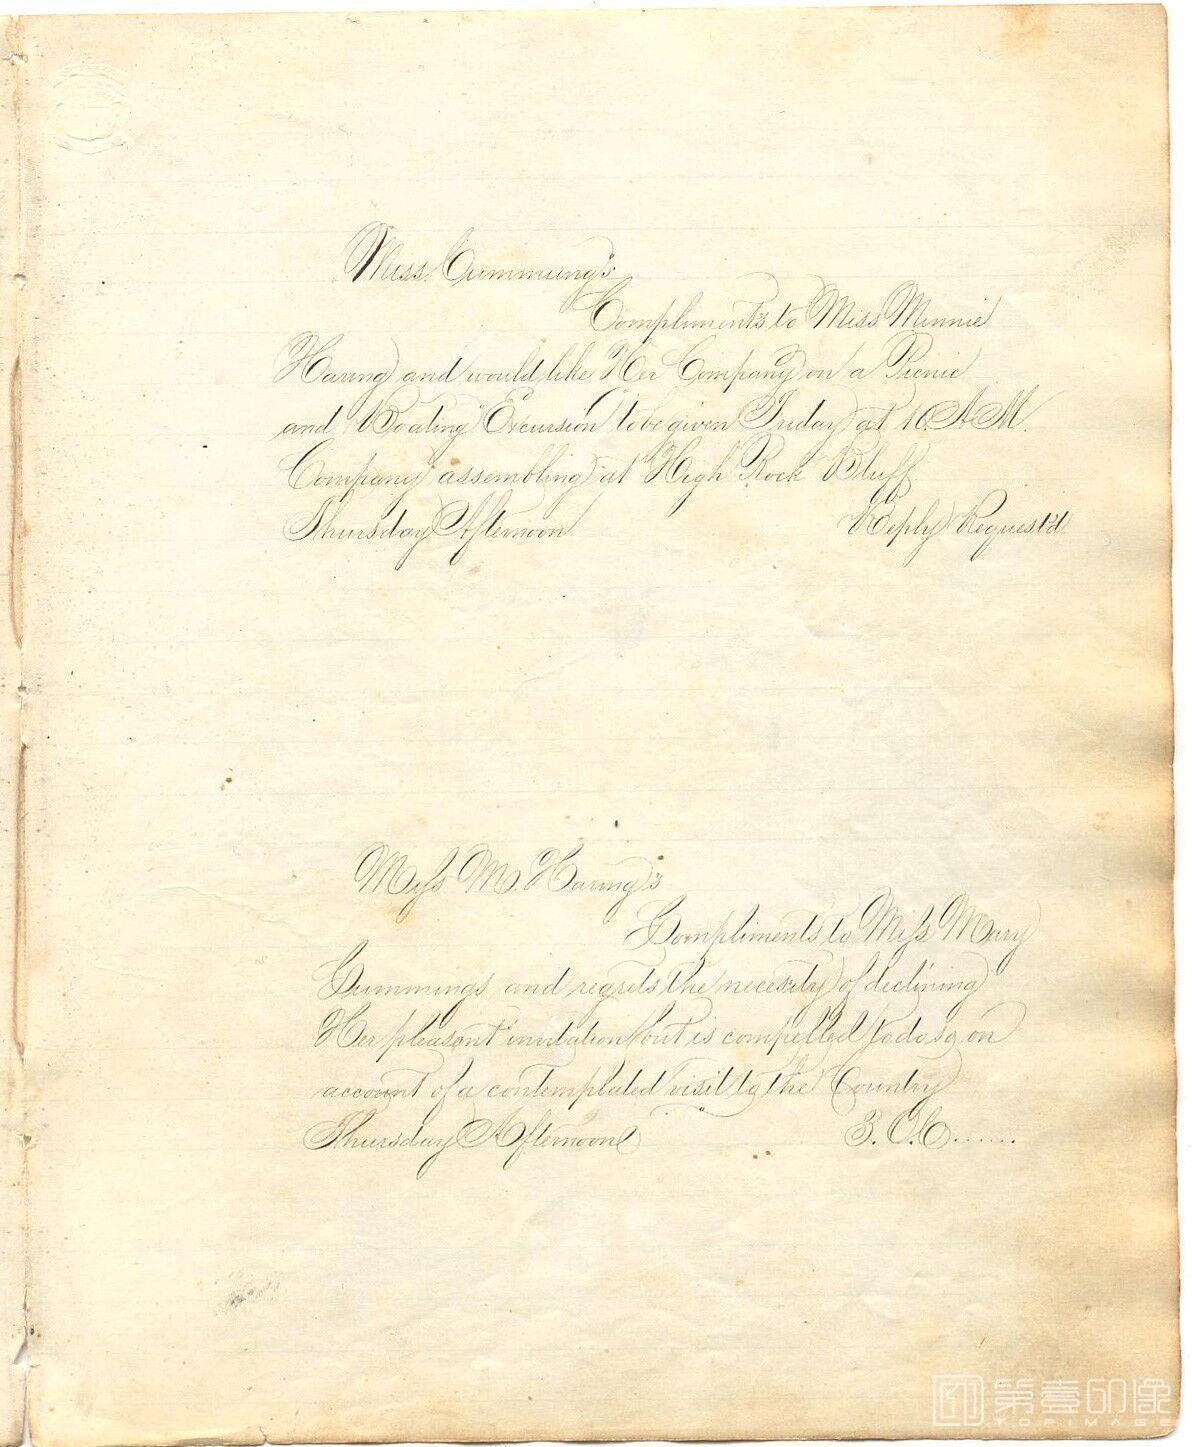 Miss Cummung's
Compliments to Miss Minnie
Haring and would like Her Company on a Picnic
and Boating Excursion to be given Friday at 10 A M.
Company assembling at High Rock Bluff.
Thursday Afternoon Reply Request'd
Miss M. Haring's
Compliments to Miss Mary
Cummings and regrets the necessity of declining
Her pleasant invitation but is compelled to do so on
account of a contemplated visit to the Country
Thursday Afternoon 3. O. C......
第壹印像
TOPIMAGE